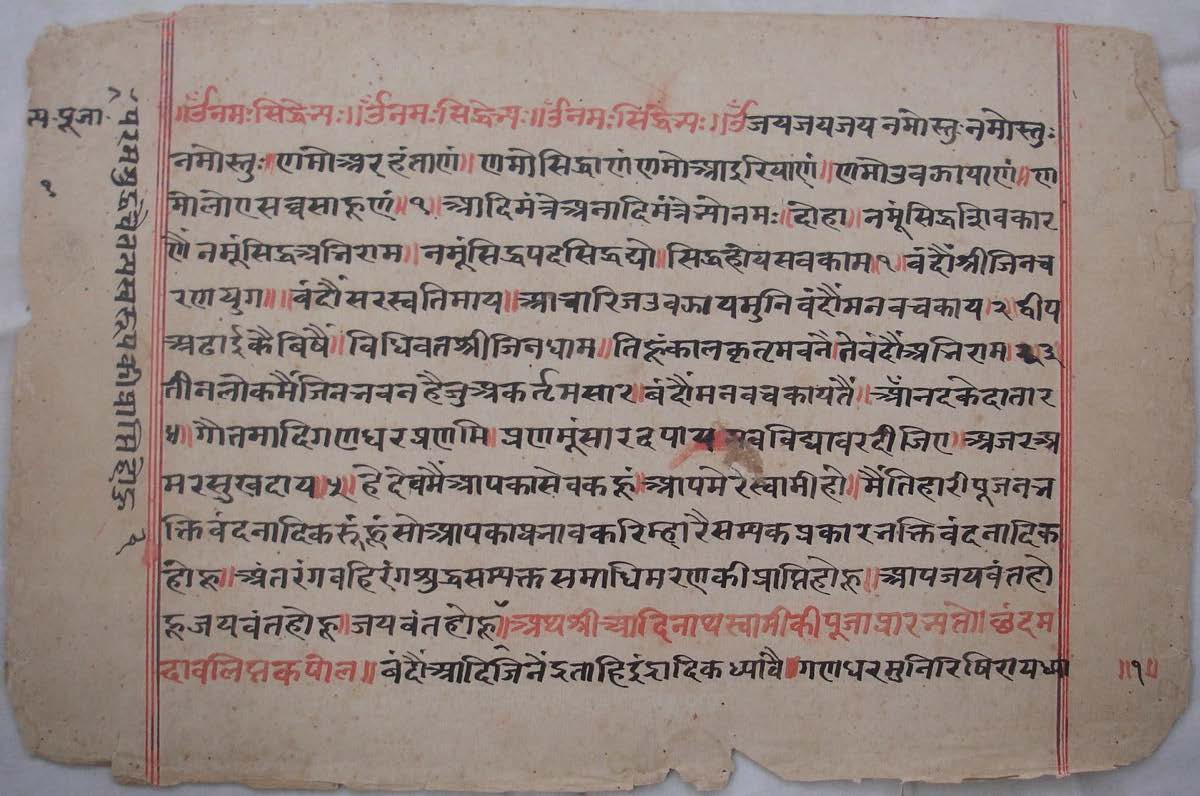 ॥ॐनमःसिद्धेभ्यः॥ॐनमःसिद्धेभ्यः॥ॐनमःसिद्धेभ्यः॥ॐजयजयजयनमोस्तुःनमोस्तुः
नमोस्तुः॥णमोअरहंताणं॥णमोसिद्धाणंणमोआइरियाणं॥णमोउवझायाणं॥ण
मोलोएसव्वसाहूणं॥१॥आदिमंत्रेअनादिमंत्रेभ्योनमः॥दोहा॥नमूंसिद्धशिवकार
णैंनमूंसिद्धअभिराम॥नमूंसिद्धपदसिद्धयो॥सिद्धहोयसवकाम॥१॥वंदौंश्रीजिनच
रणयुग॥वंदौंसरस्वतिमाय॥आचारिजउवझायमुनिवंदौंमनवचकाय॥२॥द्वीप
अढाईकैविषैं॥विधिवतश्रीजिनधाम॥तिहूंकालकृतमभवनैतेवंदौंअभिराम॥३
तीनलोकमैंजिनभवनहैजुअकर्त्तमसार॥बंदौंमनवचकायतैं॥आँनदकेदातार
४॥गौतमादिगणधरप्रणमि॥प्रणमूंसारदपाय॥भवविद्यावरदीजिए॥अजरअ
मरसुखदाय॥५॥हेदेवमैंआपकासेवकहूं॥आपमेरेस्वामीहो॥मैंतिहारीपूजनभ
क्तिवंदनादिकरूंहूंसोआपकाप्रभावकरिम्हारैसम्यकप्रकारभक्तिवंदनादिक
होहू॥अंतरंगवहिरंगशुद्धसम्यक्तसमाधिमरणकीप्राप्तिहोहू॥आपजयवंतहो
हूजयवंतहोहू॥जयवंतहोहूँ॥अथश्रीआदिनाथस्वामीकीपूजाप्रारभ्यते॥छंदम
दावलिप्तकपोल॥वंदौंआदिजिनेंद्रताहिइंद्रादिकध्यांवै॥गणधरमुनिरिषिरायध्या
॥१॥
पूजा
१
परमशुद्धचैतन्यस्वरूपकीप्राप्तिहोहू